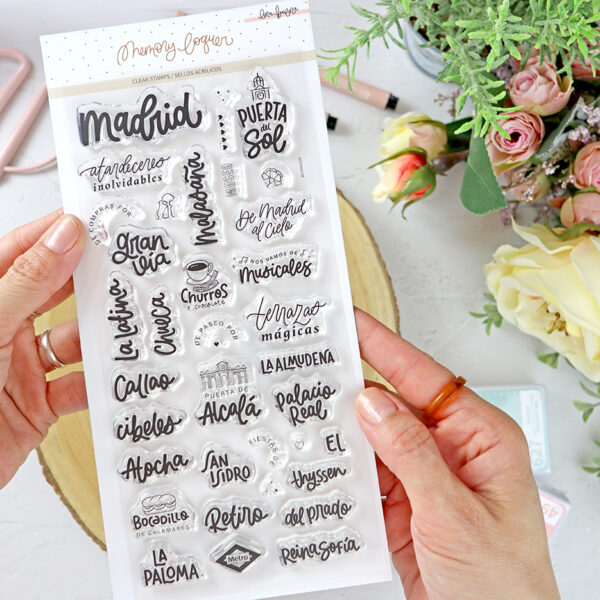 Memory Loquer
CLEAR STAMPS / SELLOS ACRÍLICOS
madrid
PUERTA
del
Sol
atardeceres
inolvidables
malasaña
MUSEO
DE COMPRAS POR
De Madrid
al Cielo
gran
vía
NOS VAMOS DE
Musicales
CHURROS
Y chocolate
La Latina
Chueca
terrazas
mágicas
DE PASEO POR
LA ALMUDENA
Callao
PUERTA DE
Alcalá
Palacio
Real
cibeles
FIESTAS DE
EL
Atocha
SAN
ISIDRO
thyssen
BOCADILLO
DE CALAMARES
Retiro
del prado
LA
PALOMA
Metro
Reina Sofía